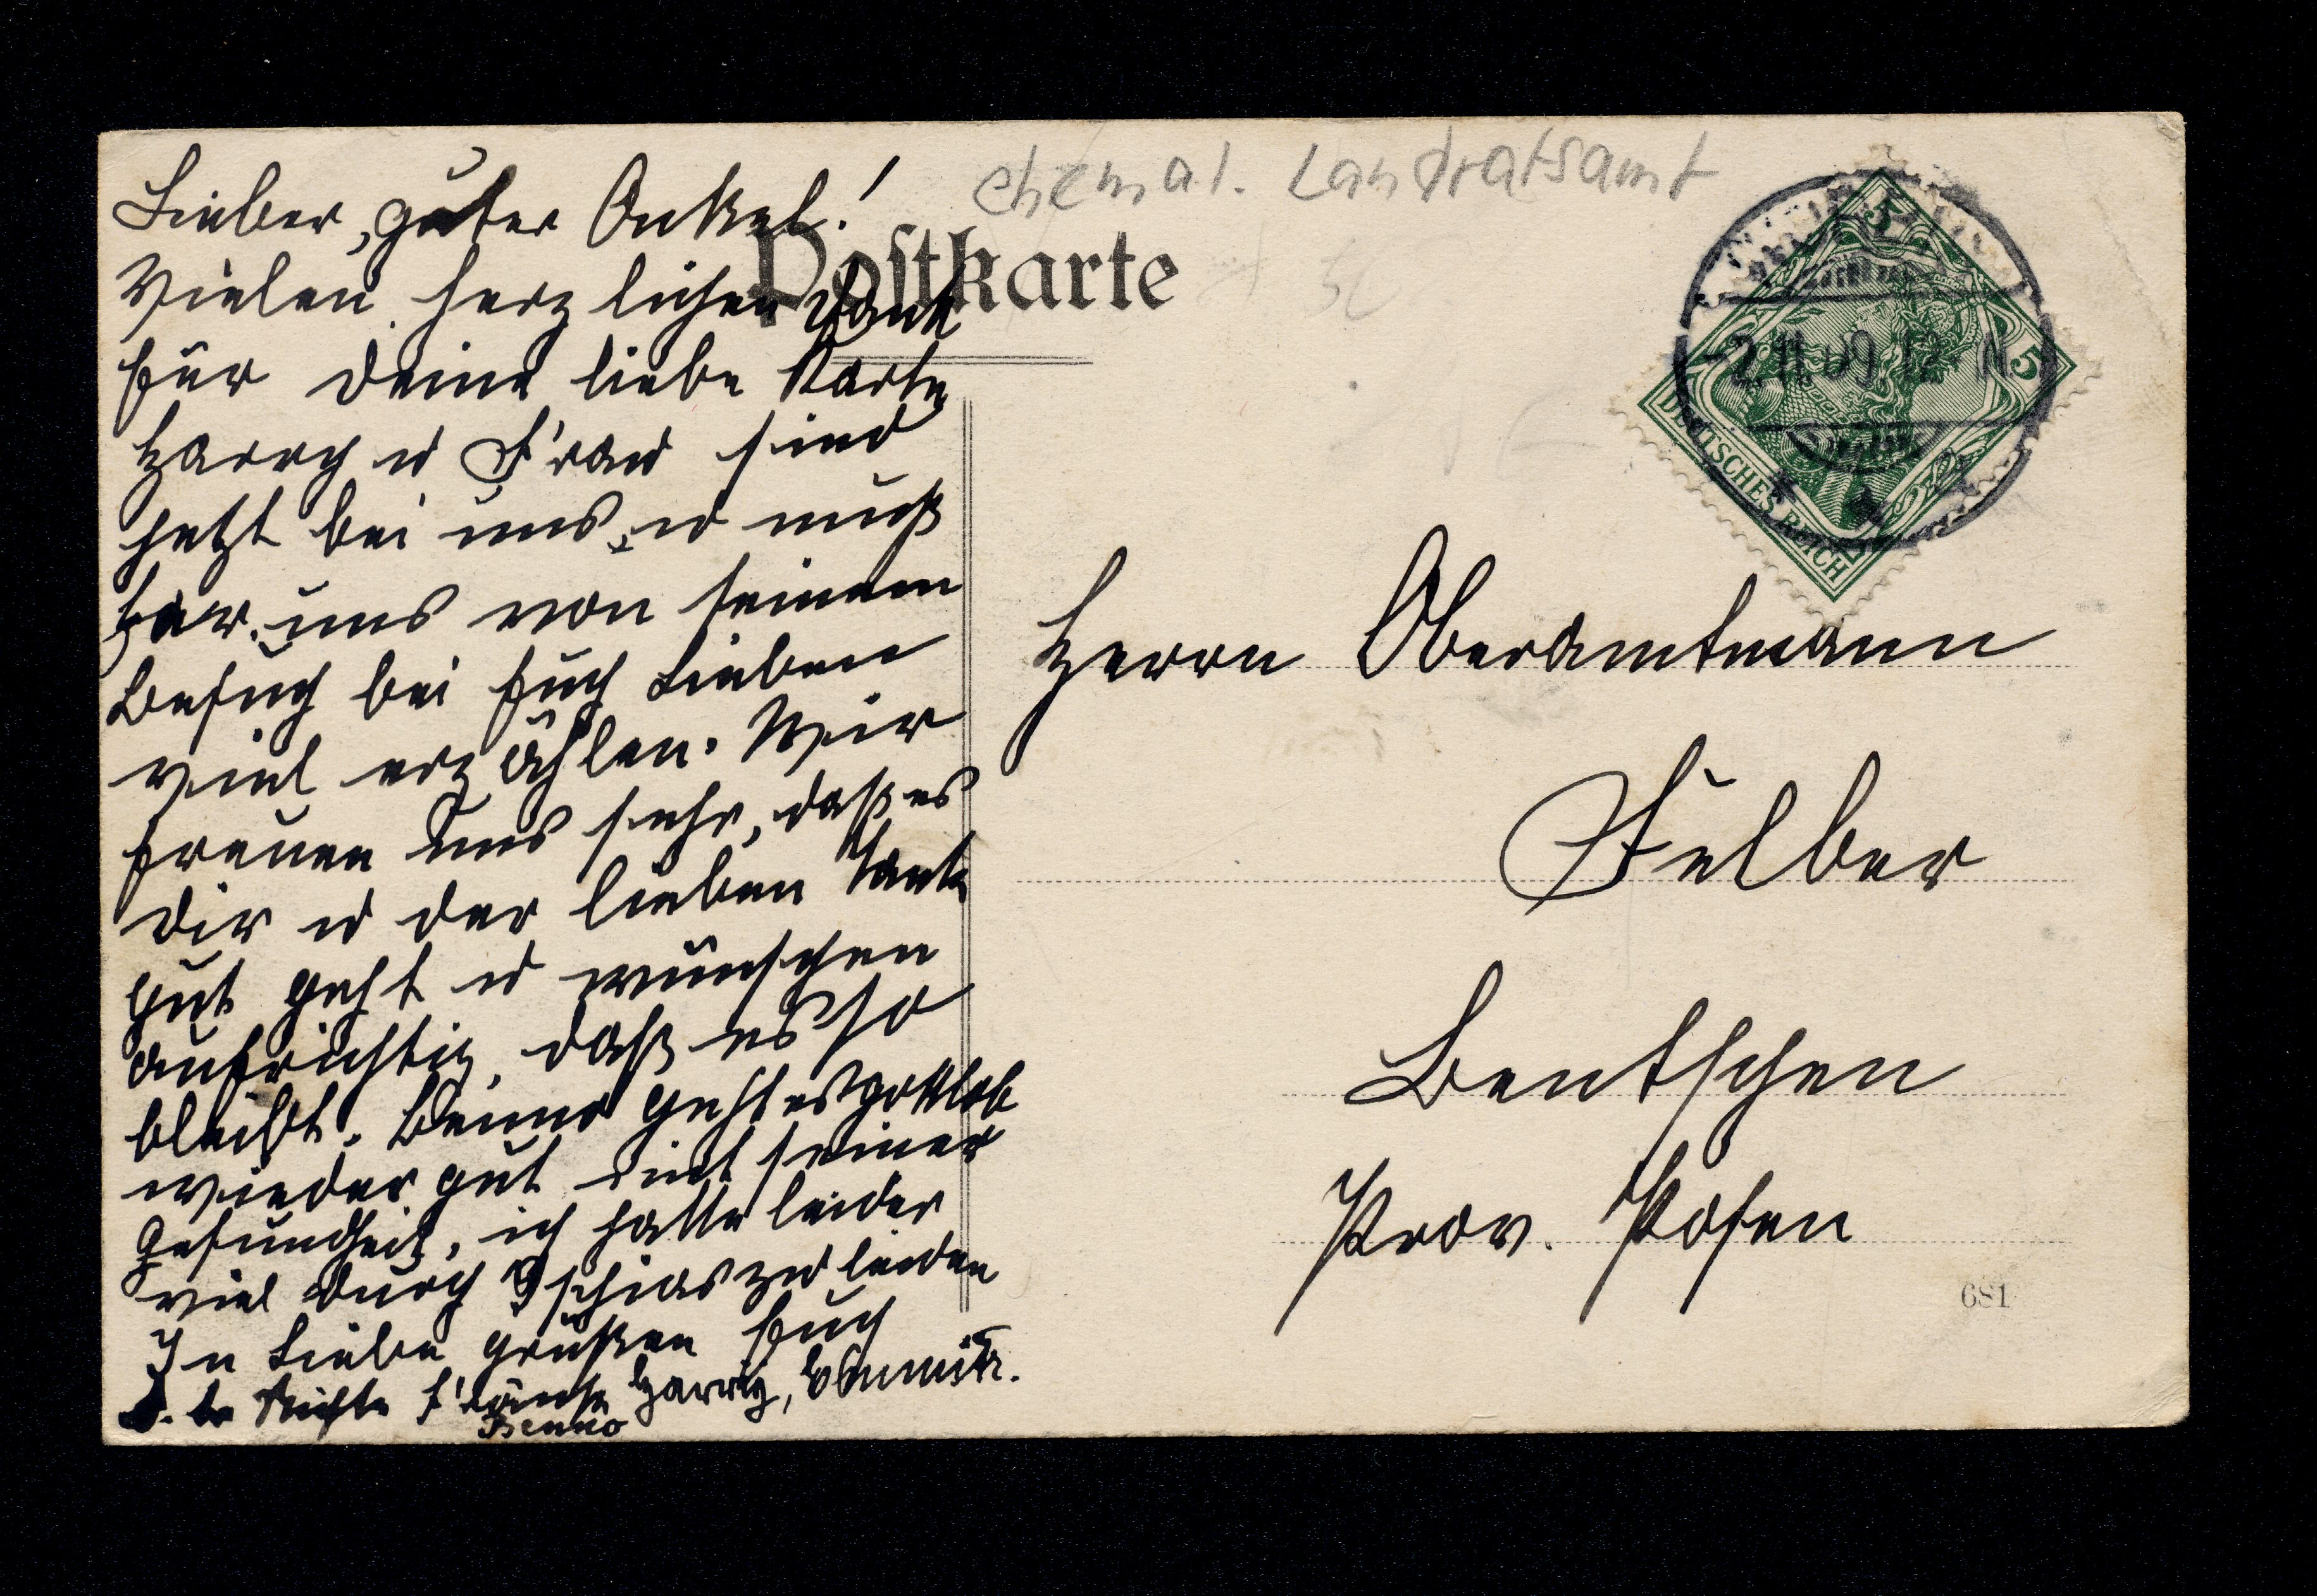 Lieber, guter Onkel!
Vielen herzlichen Dank
für Deine liebe Karte
Harry u Frau sind
jetzt bei uns u muß
Har. uns von seinem
Besuch bei Euch Lieben
viel erzählen. Wir
freuen uns sehr, daß es
Dir u der lieben Tante
gut geht u wünschen
aufrichtig, daß es so
bleibt. Benno geht es gottlob
wieder gut mit seiner
Gesundheit, ich hatte leider
viel durch Ischias zu leiden
In Liebe grüßen Euch
Nichte Harry,
Benno
ehemal. Landratsamt
Postkarte
5
5
DEUTSCHES REICH
-2.11.09.12 N
Herrn Oberamtmann
Felber
Bentschen
Prov. Posen
681